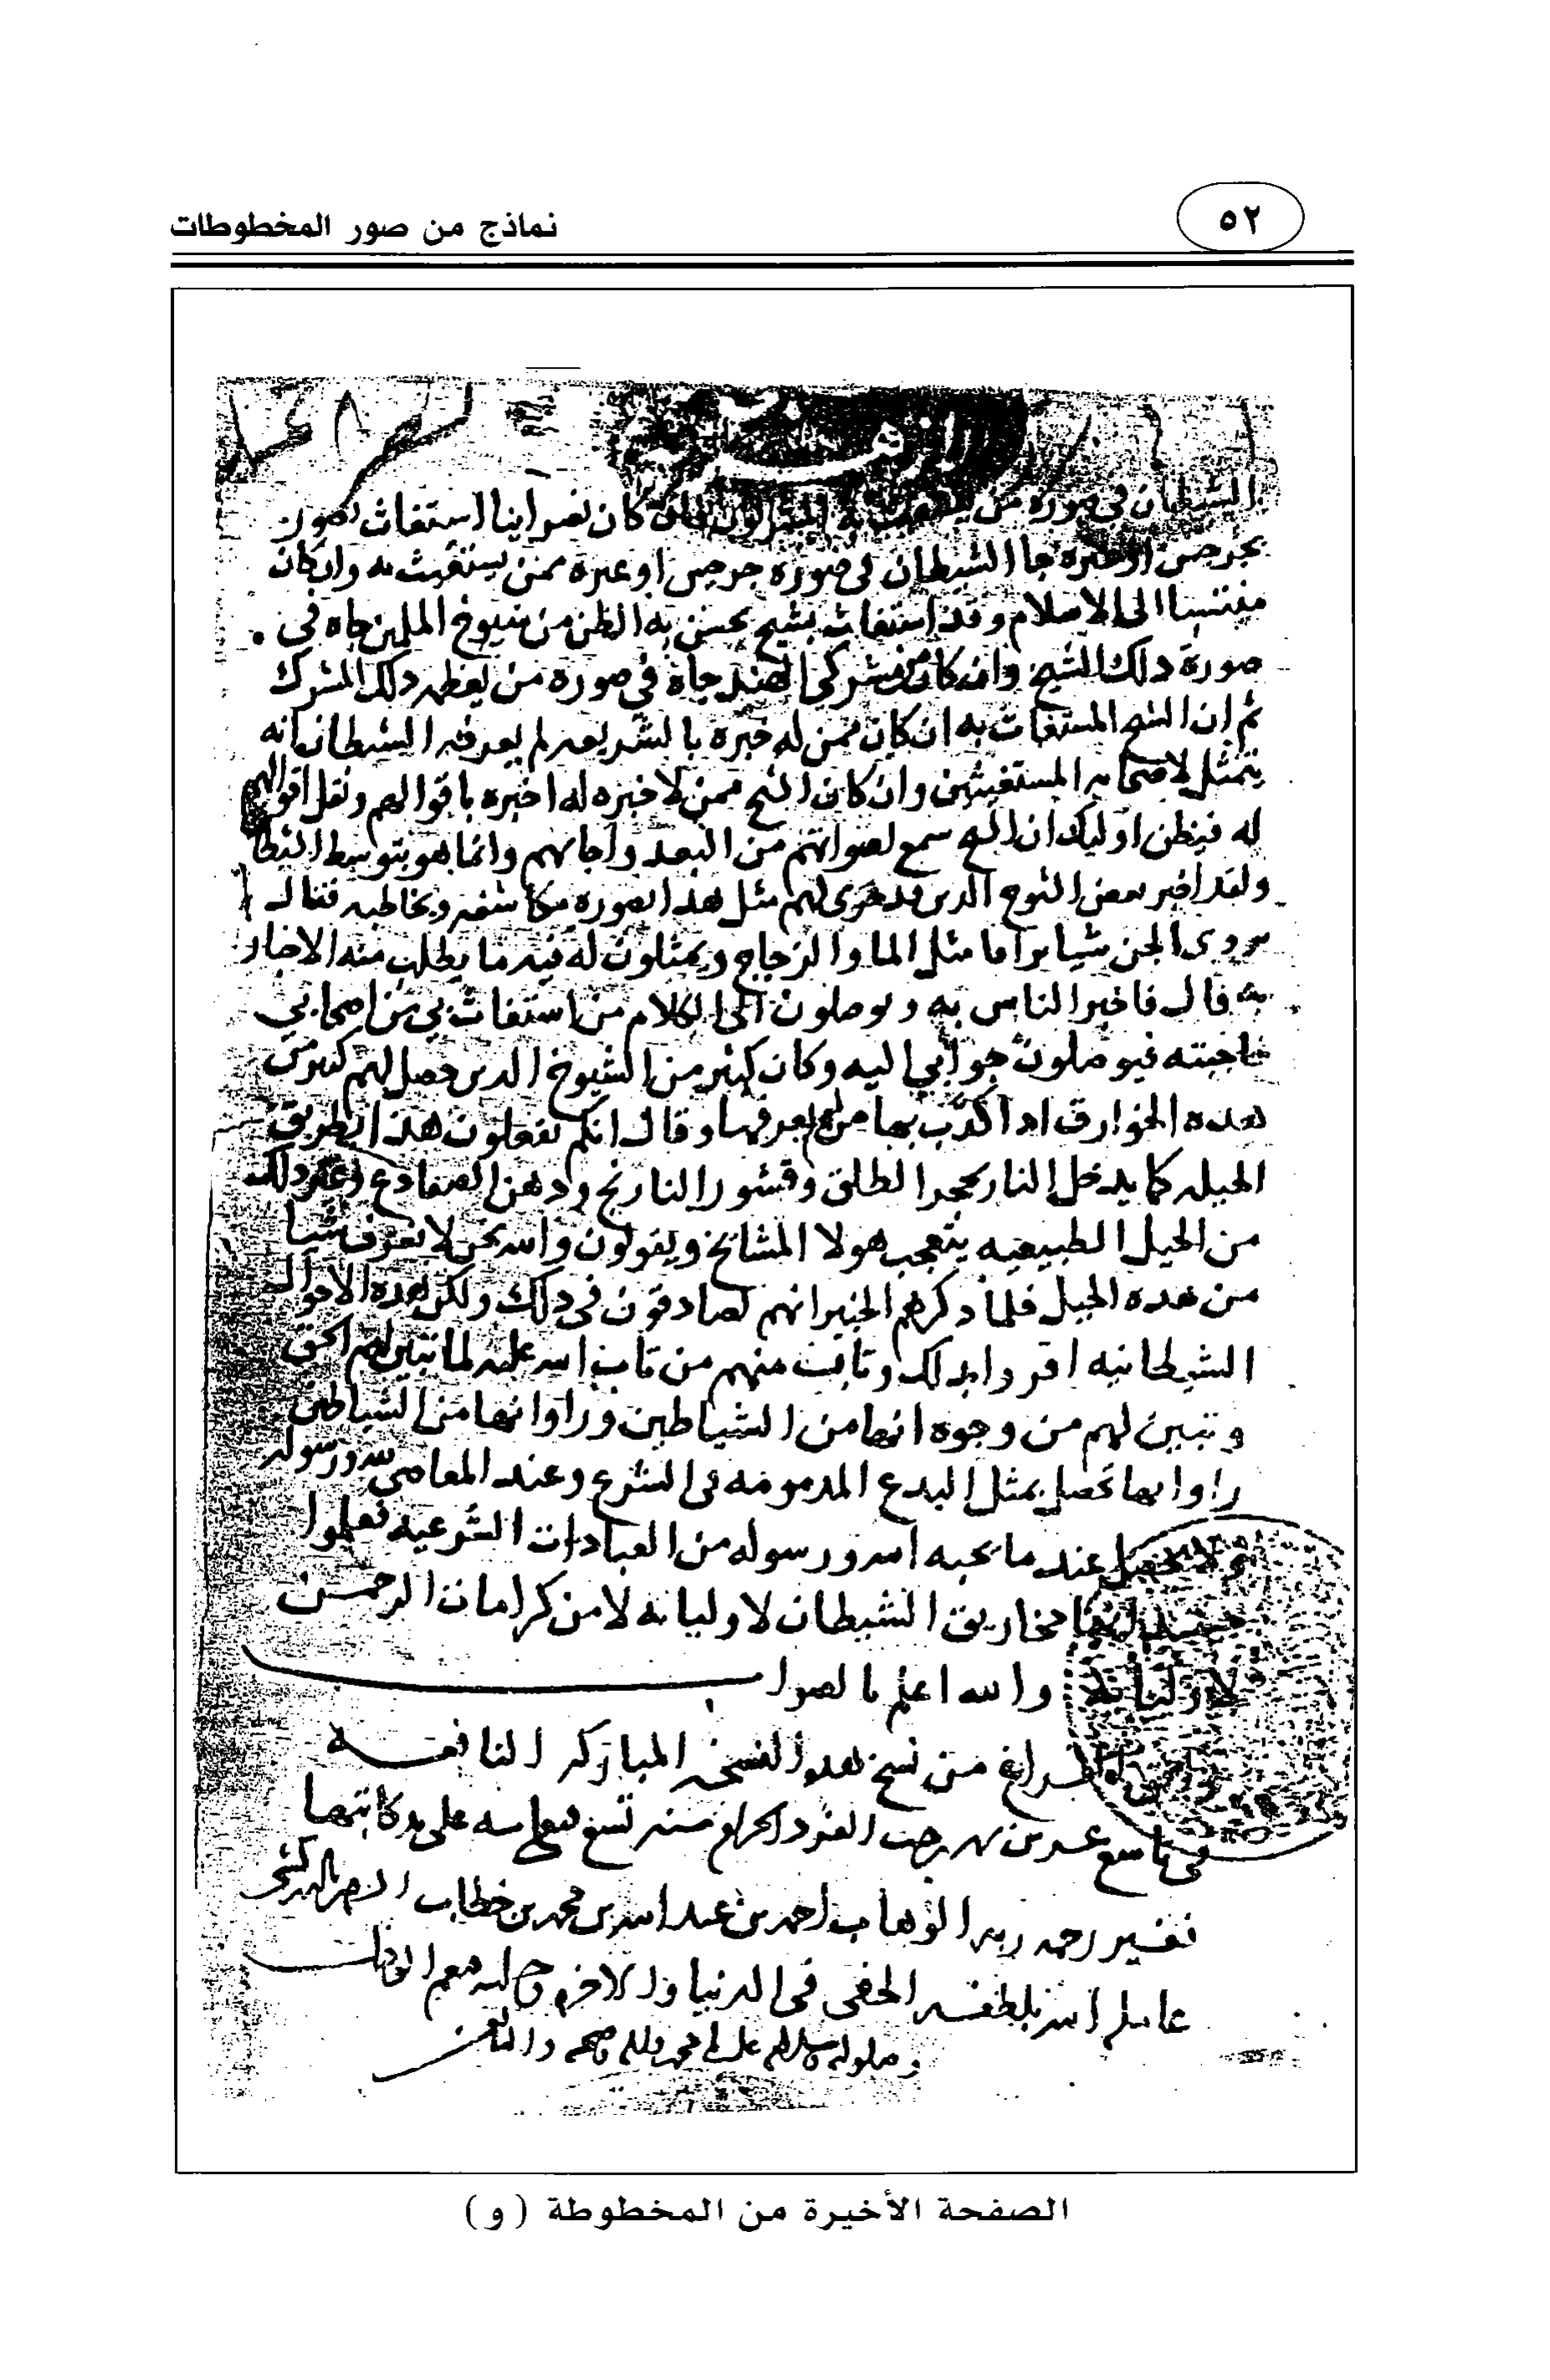 ٥٢
نماذج من صور المخطوطات
الشيطان في صوره من به كان نصرانيا استغاث
بجرجس او غيره جا الشيطان في صورة جرجس او غيره ممن يستغيث به وان كان
منتسبا الى الاسلام وقد استغاث بشيخ يحسن به الظن من شيوخ المسلمين جاه في
صورة ذلك الشيخ وان كان من مشركي الهند جاه في صورة من يعظمه ذلك المشرك
ثم ان الشيخ المستغاث به ان كان ممن له خبرة بالشريعه لم يعرفه الشيطان انه
يتمثل لاصحابه المستغيثين وان كان الشيخ ممن لا خبره له اخبره باقوالهم ونقل اقوالهم
له فيظن اوليك ان الشيخ سمع اصواتهم من البعد واجابهم وانما هو بتوسط الشيطان
ولقد اخبر بعض الشيوخ الدين قد جرى لهم مثل هذا بصوره مكاشفه ومخاطبه فقال
يروني الجن شيا براقا مثل الما والزجاج ويمثلون له فيه ما يطلب منه الاخبار
به قال فاخبر الناس به ويوصلون الى الكلام من استغاث بي من اصحابي
فاجبته فيوصلون جوابي اليه وكان كثير من الشيوخ الدين حصل لهم كثير من
هده الخوارق ادا كدب بها من لم يعرفها وقال انكم تفعلون هذا بطريق
الحيله كما يدخل النار بحجر الطلق وقشور النارنج ودهن الضفادع وغير دلك
من الحيل الطبيعيه يتعجب هولا المشايخ ويقولون والله نحن لا نعرف شيا
من هده الحيل فلما ذكر لهم الخبير انهم لصادقون في ذلك ولكن هده الاحوال
الشيطانيه اقروا بدلك وتاب منهم من تاب الله عليه لما تبين لهم الحق
وتبين لهم من وجوه انها من الشياطين وراوا انها من الشياطين
راوا انها تحصل بمثل البدع المدمومه في الشرع وعند المعاصي لله ورسوله
ولا تحصل عند ما يحبه الله ورسوله من العبادات الشرعيه فعلموا
حينيد انها مخاريق الشيطان لاوليايه لا من كرامات الرحمن
لاوليايه والله اعلم بالصواب
الفراغ من نسخ هده النسخه المباركه النافعه
في تاسع عشرين شهر رجب الفرد الحرام سنه تسع على يد كاتبها
فقير رحمه ربه الوهاب احمد بن عبد الله بن محمد بن خطاب
عامله الله بلطفه الخفي في الدنيا والاخره
محمد وصحبه والتابعين
الصفحة الأخيرة من المخطوطة ( و )